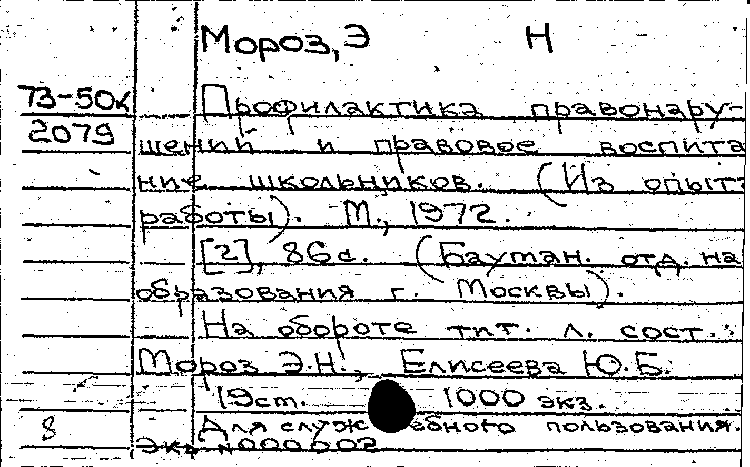 Мороз, Э Н
73-50к Профилактика правонару-
2079 шений и правовое воспита
ние школьников. (Из опыта
работы). М., 1972.
[2], 86с. (Бауман. отд. на
образования г. Москвы).
На обороте тит. л. сост.:
Мороз Э.Н., Елисеева Ю.Б.
19см. 1000 экз.
8 Для служебного пользования.
Экз N000002